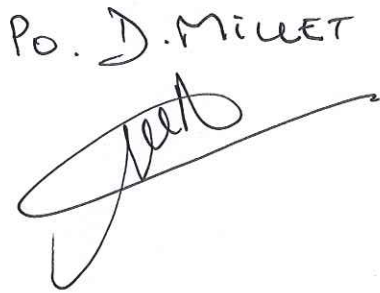 Po. D. MILLET